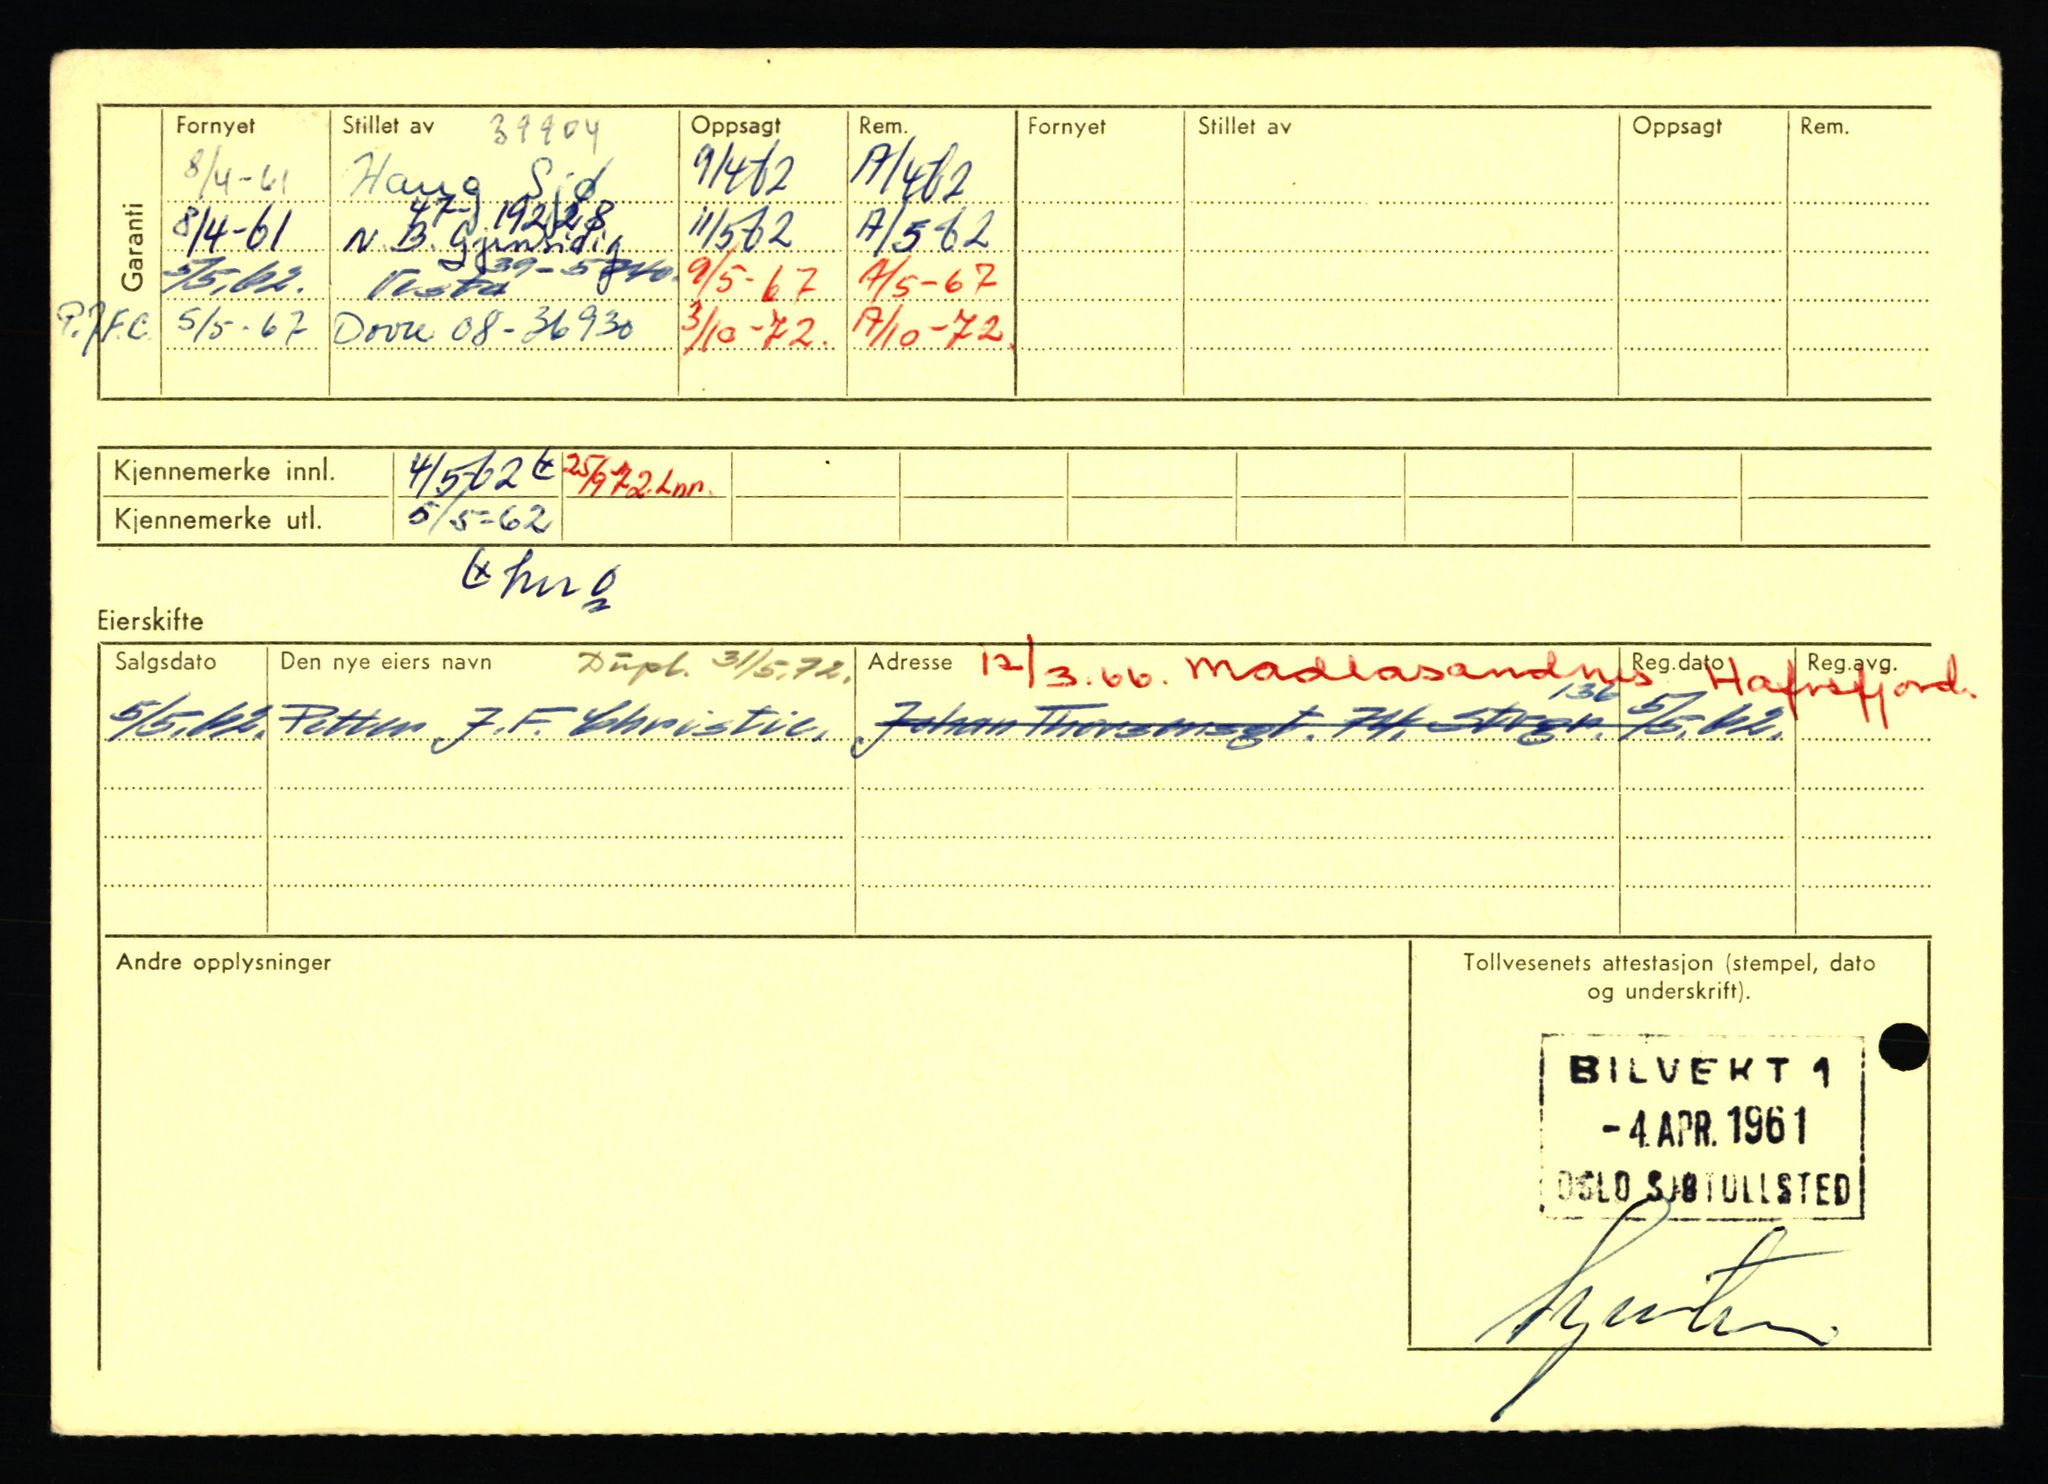 Garanti
Fornyet Stillet av 39904 Oppsagt Rem. Fornyet Stillet av Oppsagt Rem.
8/4-61 Haug Sjø 9/4 62 A/4 62
47-19228
8/4-61 N.B. Gjensidig 11/5 62 A/5 62
5/5.62. Vesta 39-5 9/5-67 A/5-67
P.J.F.C. 5/5-67 Dovre 08-36930 3/10-72. A/10-72.
Kjennemerke innl. 4/5 62 (x 25/9 72. Lnr.
Kjennemerke utl. 5/5-62
(x
Eierskifte
Salgsdato Den nye eiers navn Dupl. 31/5.72. Adresse 12/3.66. Madlasandnes 136 Hafrsfjord. Reg.dato Reg.avg.
5/5.62. Petter J.F. Christie. Johan Thorsensgt. 74. Stvgr. 5/5.62.
Andre opplysninger
Tollvesenets attestasjon (stempel, dato
og underskrift).
BILVEKT 1
-4. APR. 1961
OSLO SJØTOLLSTED